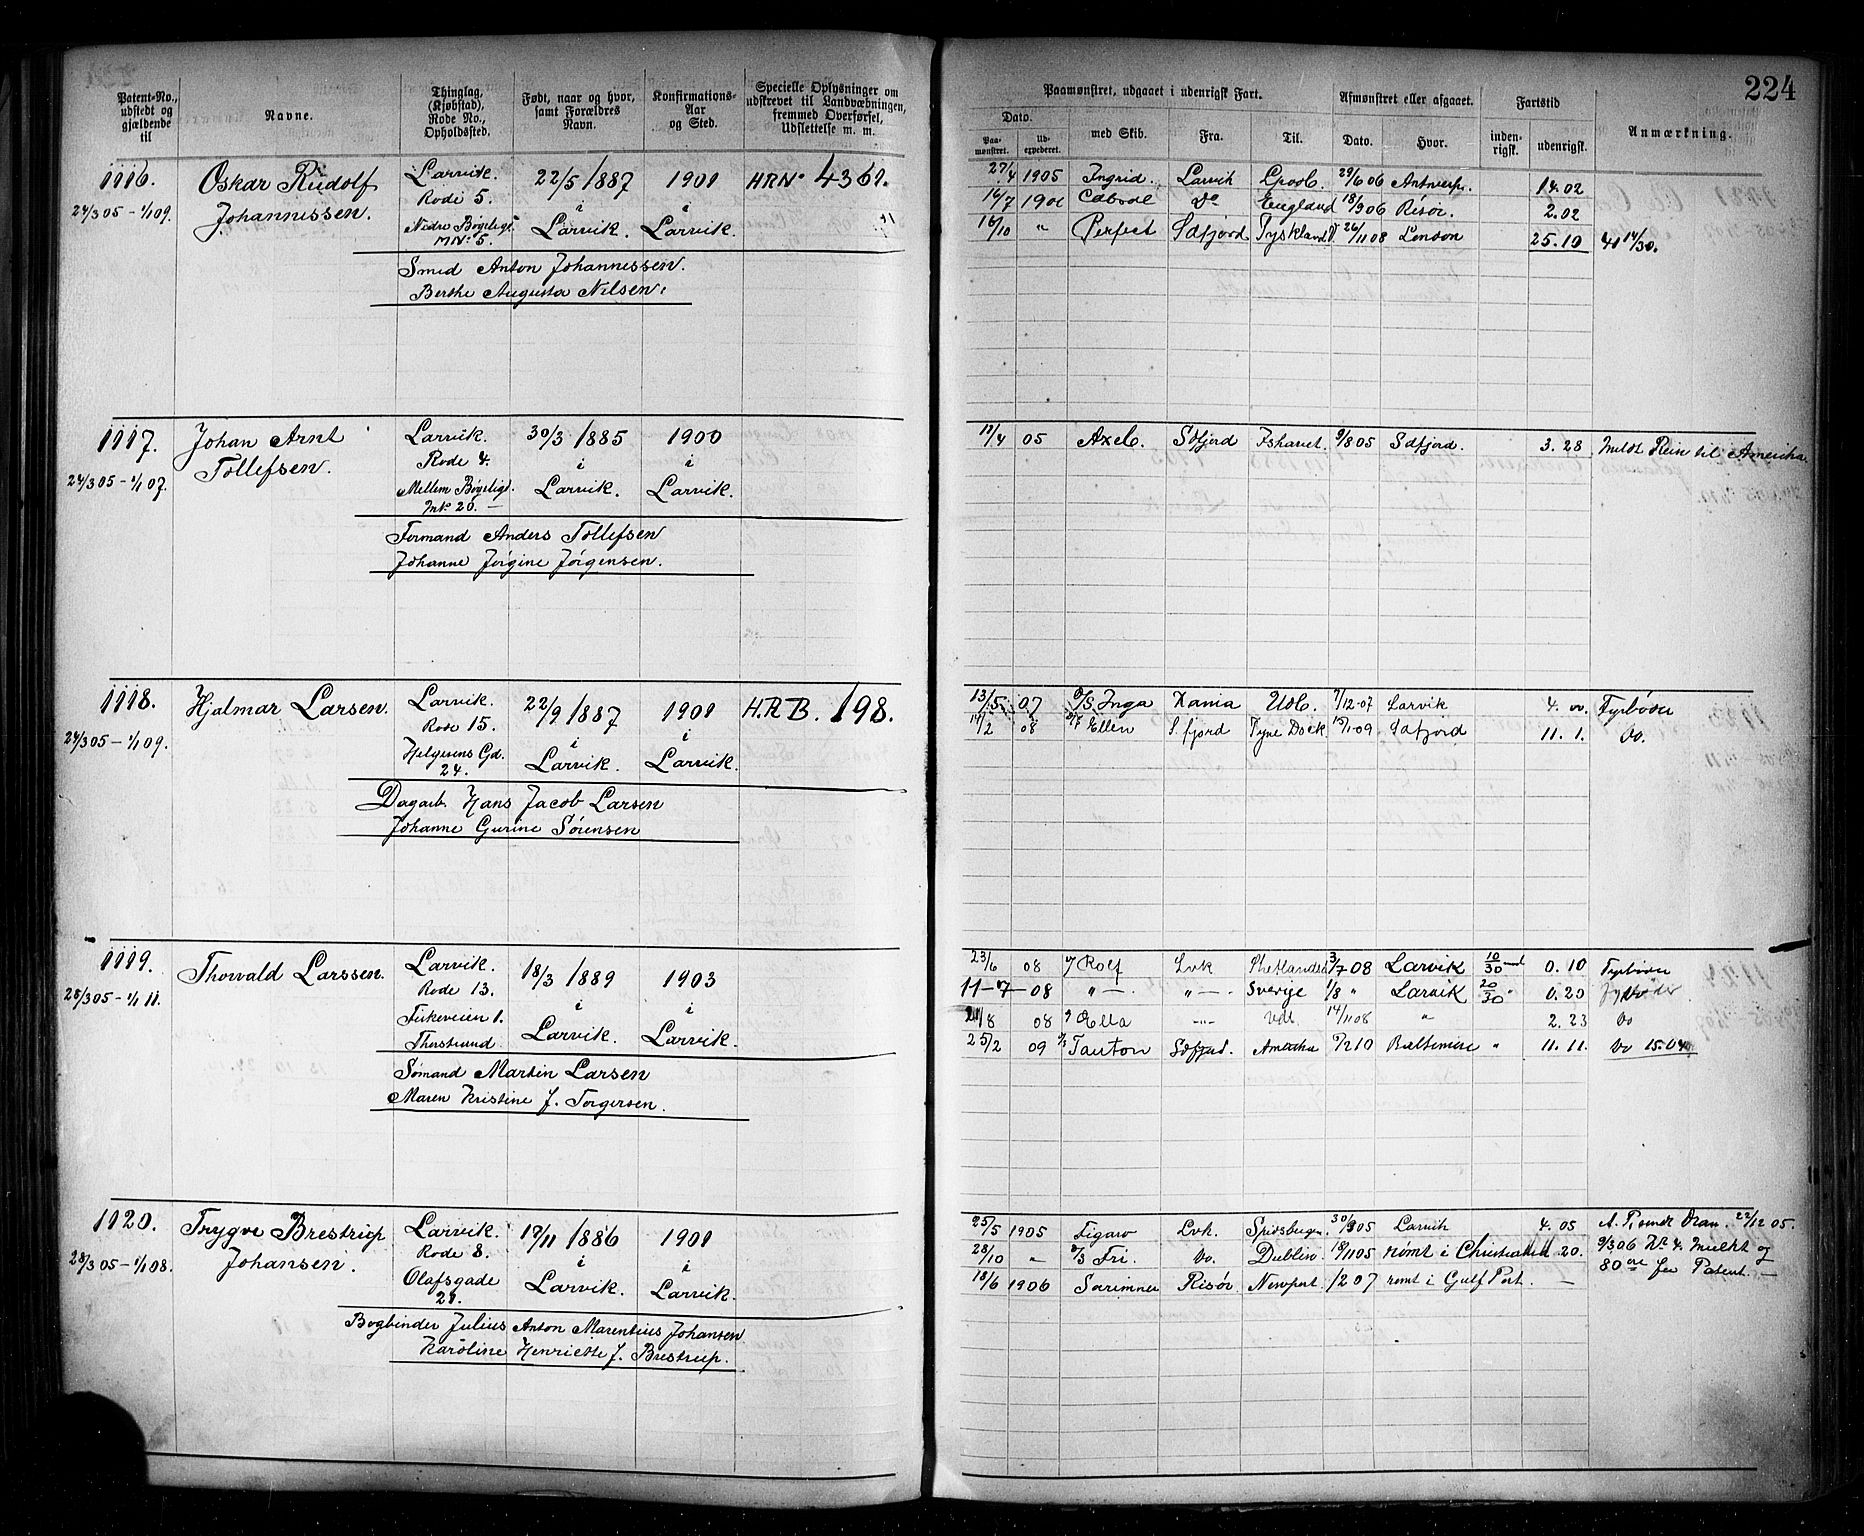 224
Patent-No., udstedt og gjældende til
Navne.
Thinglag, (Kjøbstad), Rode No., Opholdssted.
Født, naar og hvor, samt Forældres Navn.
Konfirmations-Aar og Sted.
Specielle Oplysninger om udskrevet til Landværbningen, fremmed Overførsel, Udslettelse m. m.
Paamønstret, udgaaet i udenrigsk Fart.
Afmønstret eller afgaaet.
Fartstid
Anmærkning.
Dato.
Paa-mønstret.
ud-expederet.
med Skib.
Fra.
Til.
Dato.
Hvor.
inden-rigsk.
udenrigsk.
1116. Oskar Rudolf Larvik. 22/5 1887 1901 HRN° 4361.
24/3 05 - 1/1 09. Johannissen. Rode 5. i i
Nedre Bøgeligt. MN° 5. Larvik. Larvik.
Smed Anton Johannissen.
Berthe Augusta Nilsen.
27/4 1905 Ingrid. Larvik Lpool. 29/6 06 Antwerp. 14.02
14/7 1906 D° England 18/9 06 Risør. 2.02
16/10 " Perfect Sdfjord Tyskland 26/11 08 London 25.10
1117. Johan Arnt Larvik. 30/3 1885 1900
24/3 05 - 1/1 07. Tollefsen. Rode 4. i i
Mellem Bøgeligt. MN° 20. Larvik. Larvik.
Formand Anders Tollefsen
Johanne Jørgine Jørgensen.
11/4 05 Axel. Sdfjord Ishavet. 9/8 05 Sdfjord. 3. 28 Meldt Rein til Amerika
1118. Hjalmar Larsen. Larvik. 22/9 1887 1901 H.R.B. 198.
24/3 05 - 1/1 09. Rode 15. i i
Helgesens Gd. 24. Larvik. Larvik.
Dagarb. Hans Jacob Larsen
Johanne Gurine Sørensen
13/5 07 D/S Inga Xania Udl. 7/12 07 Larvik 4. 00. Fyrbøder
14/2 08 Ellen S. fjord Tyne Dock 15/1 09 Sdfjord 11. 1. Do.
1119. Thorvald Larssen. Larvik. 18/3 1889 1903
28/3 05 - 1/1 11. Rode 13. i i
Fiskeveien 1. Larvik. Larvik.
Thorstrand.
Sømand Martin Larsen
Maren Kristine J. Torgersen.
23/6 08 Rolf Lvk Shetlands 3/7 08 Larvik 10/30 0. 10 Fyrbøder
11-7-08 " — " — Sverige 1/8 " Larvik 20/30 " 0.20
21/8 08 Ella Udl. 14/11 08 " 2. 23 Do
25/2 09 Tanton Sdfjord. Amerika 7/2 10 Baltimore " 11. 11. Do 15.04
1120. Trygve Brestrup Larvik. 17/11 1886 1901
28/3 05 - 1/1 08. Johansen. Rode 8. i i
Olafsgade 21. Larvik. Larvik.
Bogbinder Julius Anton Marentius Johansen
Karoline Henriette J. Brestrup.
25/5 1905 Figaro Lvk. Spidsbergn 30/9 05 Larvik 4. 05
28/10 " Fri Do. Dublin. 18/11 05 rømt i Christiansd 20. 9/3 06 Kr 4. Mulkt og
18/6 1906 Sarimner Risør. Newport. 1/2 07 rømt i Gulf Port. — 80 øre for Patent. —